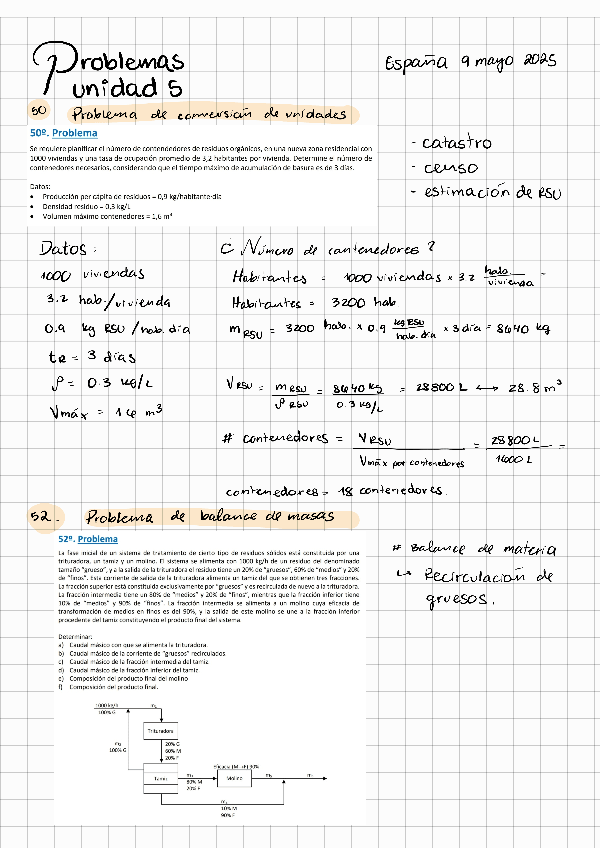 Problemas
unidad 5
España 9 mayo 2025
50 Problema de conversión de unidades
50º. Problema
Se requiere planificar el número de contendedores de residuos orgánicos, en una nueva zona residencial con
1000 viviendas y una tasa de ocupación promedio de 3,2 habitantes por vivienda. Determine el número de
contenedores necesarios, considerando que el tiempo máximo de acumulación de basura es de 3 días.
Datos:
• Producción per cápita de residuos = 0,9 kg/habitante·día
• Densidad residuo = 0,3 kg/L
• Volumen máximo contenedores = 1,6 m³
- catastro
- censo
- estimación de RSU
Datos:
1000 viviendas
3.2 hab/vivienda
0.9 kg RSU/hab.día
tR = 3 días
ρ = 0.3 kg/L
Vmáx = 1.6 m³
¿ Número de contenedores ?
Habitantes = 1000 viviendas × 3.2 hab./vivienda
Habitantes = 3200 hab.
m RSU = 3200 hab. × 0.9 kg RSU/hab.día × 3 día = 8640 kg
V RSU = m RSU / ρ RSU = 8640 kg / 0.3 kg/L = 28800 L ⟷ 28.8 m³
# contenedores = V RSU / Vmáx por contenedores = 28800 L / 1600 L =
contenedores = 18 contenedores.
52. Problema de balance de masas
52º. Problema
La fase inicial de un sistema de tratamiento de cierto tipo de residuos sólidos está constituida por una
trituradora, un tamiz y un molino. El sistema se alimenta con 1000 kg/h de un residuo del denominado
tamaño "grueso", y a la salida de la trituradora el residuo tiene un 20% de "gruesos", 60% de "medios" y 20%
de "finos". Esta corriente de salida de la trituradora alimenta un tamiz del que se obtienen tres fracciones.
La fracción superior está constituida exclusivamente por "gruesos" y es recirculada de nuevo a la trituradora.
La fracción intermedia tiene un 80% de "medios" y 20% de "finos", mientras que la fracción inferior tiene
10% de "medios" y 90% de "finos". La fracción intermedia se alimenta a un molino cuya eficacia de
transformación de medios en finos es del 90%, y la salida de este molino se une a la fracción inferior
procedente del tamiz constituyendo el producto final del sistema.
Determinar:
a) Caudal másico con que se alimenta la trituradora.
b) Caudal másico de la corriente de "gruesos" recirculados
c) Caudal másico de la fracción intermedia del tamiz
d) Caudal másico de la fracción inferior del tamiz
e) Composición del producto final del molino
f) Composición del producto final.
# Balance de materia
↳ Recirculación de
gruesos.
1000 kg/h
100% G
m₁
Trituradora
m₂
100% G
20% G
60% M
20% F
Tamiz
m₃
80% M
20% F
Eficacia (M→F) 90%
Molino
10% M
90% F